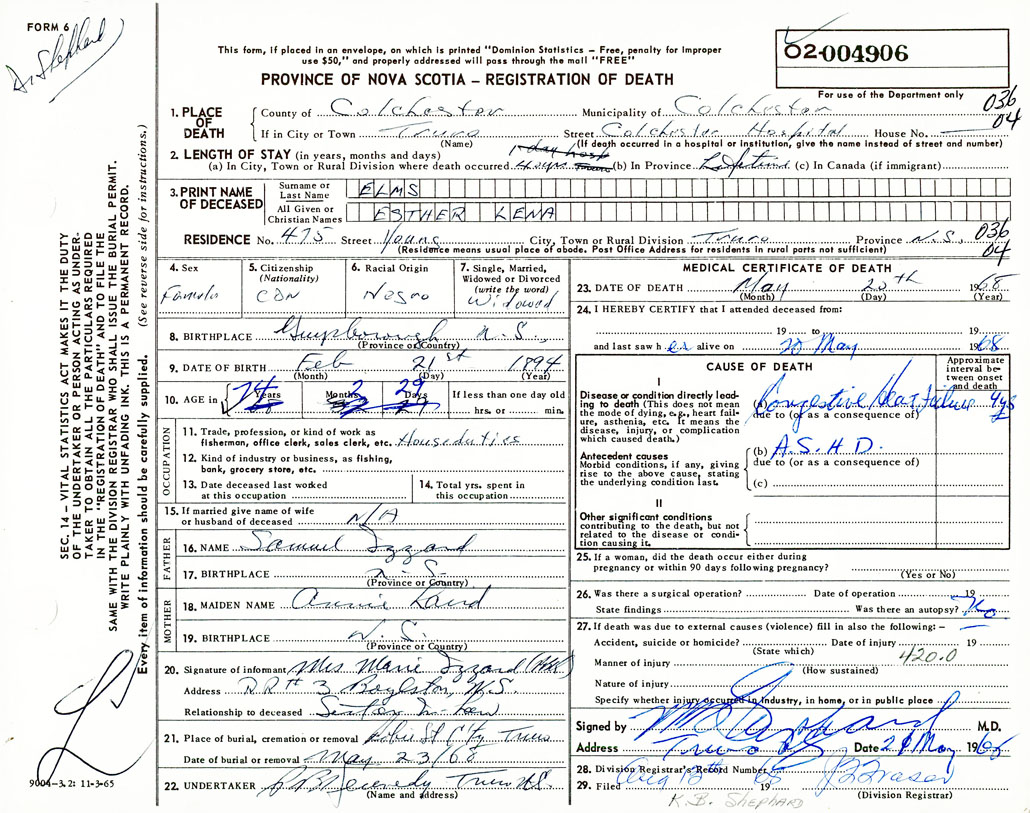 FORM 6
Dr. Shephard
This form, if placed in an envelope, on which is printed "Dominion Statistics – Free, penalty for improper
use $50," and properly addressed will pass through the mail "FREE"
PROVINCE OF NOVA SCOTIA – REGISTRATION OF DEATH
02-004906
For use of the Department only
036
04
1. PLACE OF DEATH
County of Colchester Municipality of Colchester
If in City or Town Truro Street Colchester Hospital House No.
(Name) (If death occurred in a hospital or institution, give the name instead of street and number)
2. LENGTH OF STAY (in years, months and days)
1 day hosp
(a) In City, Town or Rural Division where death occurred (b) In Province Lifetime (c) In Canada (if immigrant)
3. PRINT NAME OF DECEASED
Surname or Last Name ELMS
All Given or Christian Names ESTHER LENA
RESIDENCE No. 475 Street Young City, Town or Rural Division Truro Province N.S.
(Residence means usual place of abode. Post Office Address for residents in rural parts not sufficient)
036
04
4. Sex
Female
5. Citizenship
(Nationality)
CDN
6. Racial Origin
Negro
7. Single, Married,
Widowed or Divorced
(write the word)
Widowed
8. BIRTHPLACE Guysborough N.S.
(Province or Country)
9. DATE OF BIRTH Feb 21st 1894
(Month) (Day) (Year)
10. AGE in 74 Years Months 2 29 Days
If less than one day old
hrs. or min.
OCCUPATION
11. Trade, profession, or kind of work as
fisherman, office clerk, sales clerk, etc. Houseduties
12. Kind of industry or business, as fishing,
bank, grocery store, etc.
13. Date deceased last worked
at this occupation
14. Total yrs. spent in
this occupation
15. If married give name of wife
or husband of deceased N/A
FATHER
16. NAME Samuel Izzard
17. BIRTHPLACE N.S.
(Province or Country)
MOTHER
18. MAIDEN NAME Annie Laird
19. BIRTHPLACE N.S.
(Province or Country)
20. Signature of informant Mrs. Marie Izzard
Address RR# 3 Boylston, N.S.
Relationship to deceased Sister In Law
21. Place of burial, cremation or removal St City Truro
Date of burial or removal May 23/68
22. UNDERTAKER Truro N.S.
(Name and address)
MEDICAL CERTIFICATE OF DEATH
23. DATE OF DEATH May 20th 1968
(Month) (Day) (Year)
24. I HEREBY CERTIFY that I attended deceased from:
19 to 19
and last saw her alive on 20 May 1968
CAUSE OF DEATH
Approximate interval between onset and death
I
Disease or condition directly leading to death (This does not mean the mode of dying, e.g., heart failure, asthenia, etc. It means the disease, injury, or complication which caused death.)
(a) Congestive Heart Failure 4 yrs
due to (or as a consequence of)
Antecedent causes
Morbid conditions, if any, giving rise to the above cause, stating the underlying condition last.
(b) A.S.H.D.
due to (or as a consequence of)
(c)
II
Other significant conditions
contributing to the death, but not related to the disease or condition causing it.
25. If a woman, did the death occur either during
pregnancy or within 90 days following pregnancy?
(Yes or No)
26. Was there a surgical operation? Date of operation 19
State findings Was there an autopsy? No
27. If death was due to external causes (violence) fill in also the following: –
Accident, suicide or homicide? Date of injury 19
(State which)
420.0
Manner of injury
(How sustained)
Nature of injury
Specify whether injury occurred in industry, in home, or in public place
Signed by M.D.
Address Truro NS Date 29 May 1968
28. Division Registrar's Record Number
29. Filed Aug 12th 1968
(Division Registrar)
K.B. SHEPHARD
SEC. 14 – VITAL STATISTICS ACT MAKES IT THE DUTY
OF THE UNDERTAKER OR PERSON ACTING AS UNDER-
TAKER TO OBTAIN ALL THE PARTICULARS REQUIRED
IN THE "REGISTRATION OF DEATH" AND TO FILE THE
SAME WITH THE DIVISION REGISTRAR WHO SHALL ISSUE THE BURIAL PERMIT.
WRITE PLAINLY WITH UNFADING INK. THIS IS A PERMANENT RECORD.
Every item of information should be carefully supplied. (See reverse side for instructions.)
9004–3.2: 11-3-65